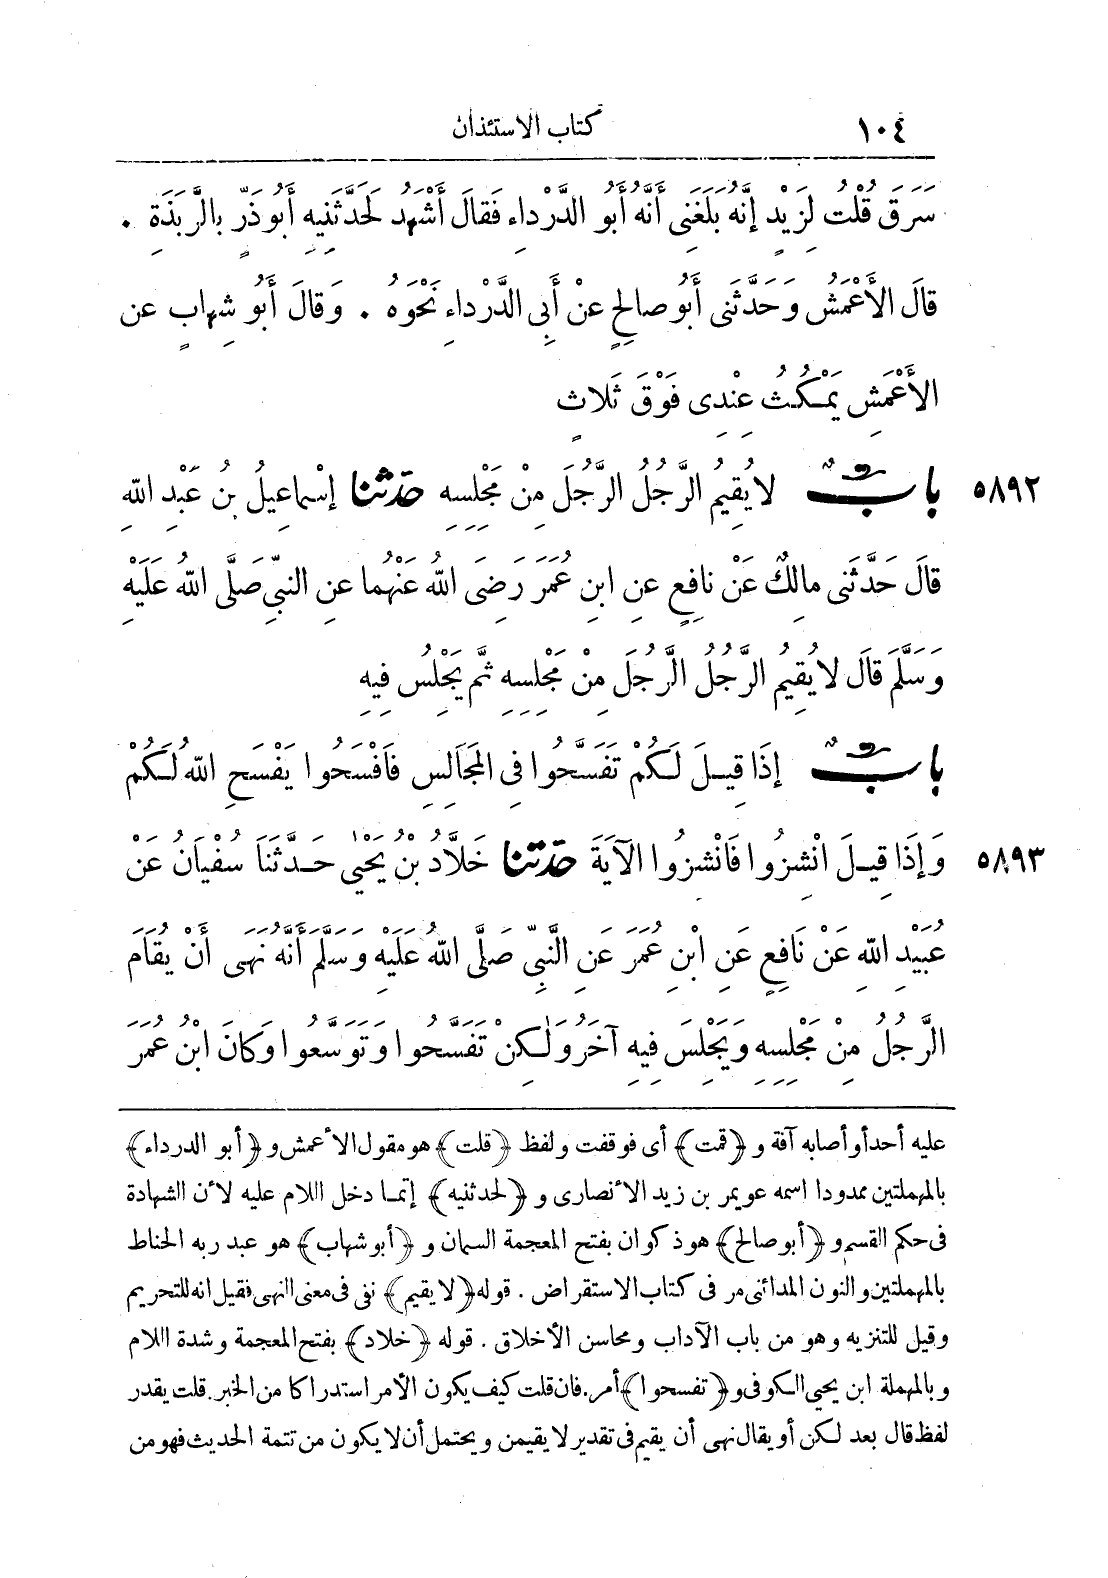 ١٠٤ كتاب الاستئذان
سَرَقَ قُلْتُ لِزَيْدٍ إِنَّهُ بَلَغَنِى أَنَّهُ أَبُو الدَّرْدَاءِ فَقَالَ أَشْهَدُ لَحَدَّثَنِيهِ أَبُو ذَرٍّ بِالرَّبَذَةِ .
قَالَ الأَعْمَشُ وَحَدَّثَنِى أَبُو صَالِحٍ عَنْ أَبِى الدَّرْدَاءِ نَحْوَهُ . وَقَالَ أَبُو شِهَابٍ عَنِ
الأَعْمَشِ يَمْكُثُ عِنْدِى فَوْقَ ثَلَاثٍ
٥٨٩٢ بَابٌ لَا يُقِيمُ الرَّجُلُ الرَّجُلَ مِنْ مَجْلِسِهِ حَدَّثَنَا إِسْمَاعِيلُ بْنُ عَبْدِ اللهِ
قَالَ حَدَّثَنِى مَالِكٌ عَنْ نَافِعٍ عَنِ ابْنِ عُمَرَ رَضِىَ اللهُ عَنْهُمَا عَنِ النَّبِىِّ صَلَّى اللهُ عَلَيْهِ
وَسَلَّمَ قَالَ لَا يُقِيمُ الرَّجُلُ الرَّجُلَ مِنْ مَجْلِسِهِ ثُمَّ يَجْلِسُ فِيهِ
بَابٌ إِذَا قِيلَ لَكُمْ تَفَسَّحُوا فِى الْمَجَالِسِ فَافْسَحُوا يَفْسَحِ اللهُ لَكُمْ
٥٨٩٣ وَإِذَا قِيلَ انْشِزُوا فَانْشِزُوا الآيَةَ حَدَّثَنَا خَلَّادُ بْنُ يَحْيَى حَدَّثَنَا سُفْيَانُ عَنْ
عُبَيْدِ اللهِ عَنْ نَافِعٍ عَنِ ابْنِ عُمَرَ عَنِ النَّبِىِّ صَلَّى اللهُ عَلَيْهِ وَسَلَّمَ أَنَّهُ نَهَى أَنْ يُقَامَ
الرَّجُلُ مِنْ مَجْلِسِهِ وَيَجْلِسَ فِيهِ آخَرُ وَلَكِنْ تَفَسَّحُوا وَتَوَسَّعُوا وَكَانَ ابْنُ عُمَرَ
عليه أحد أو أصابه آفة و ﴿قمت﴾ أى فوقفت ولفظ ﴿قلت﴾ هو مقول الأعمش و ﴿أبو الدرداء﴾
بالمهملتين ممدودا اسمه عويمر بن زيد الأنصارى و ﴿لحدثنيه﴾ إنما دخل اللام عليه لأن الشهادة
فى حكم القسم و ﴿أبو صالح﴾ هو ذكوان بفتح المعجمة السمان و ﴿أبو شهاب﴾ هو عبد ربه الحناط
بالمهملتين والنون المدائنى مر فى كتاب الاستقراض . قوله ﴿لا يقيم﴾ نفى فى معنى النهى فقيل انه للتحريم
وقيل للتنزيه وهو من باب الآداب ومحاسن الأخلاق . قوله ﴿خلاد﴾ بفتح المعجمة وشدة اللام
وبالمهملة ابن يحيى الكوفى و ﴿تفسحوا﴾ أمر. فان قلت كيف يكون الأمر استدراكا من الخبر. قلت يقدر
لفظ قال بعد لكن أو يقال نهى أن يقيم فى تقدير لا يقيمن ويحتمل أن لا يكون من تتمة الحديث فهو من